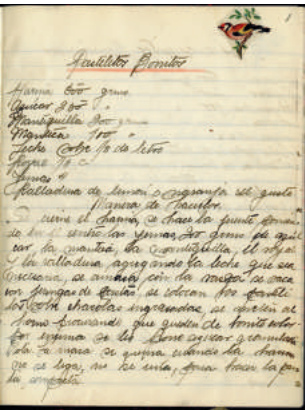 1
Pastelitos Bonitos
Harina 600 grms
Azúcar 200 "
Mantequilla 200 grms
Manteca 100 "
Leche sobre 1/0 de litro
Royal 10 "
Yemas 4
Ralladura de limón o naranja al gusto
Manera de hacerlos.
cierne el harina, se hace la fuente
en el centro las yemas, grms de azú
car, la manteca, la mantequilla, el royal
y la ralladura, agregando la leche que sea
necesaria, se amasa con la se saca
con se colocan los pasteli
tos sobre charolas engrasadas, se meten al
horno procurando que queden de bonito color
por encima se les pone azúcar granulada
La masa se quema cuando la harina
no se liga, no se une, para hacer la pas
ta completa